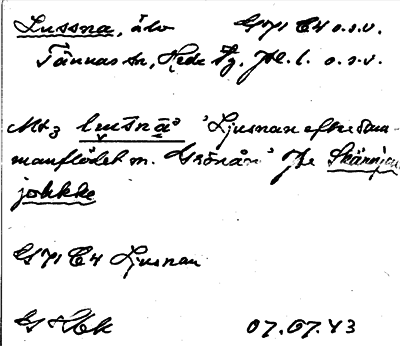 Lussna, älv G 71 C4 o.s.v.
Tännäs sn, Hede tg, Jl. l. o.s.v.
Mt3 lu̬šnä 'Ljusnan efter sam-
manflödet m. Grönån' Jfr Skärmjen
jokke
G 71 C4 Ljusnan
07.07.43